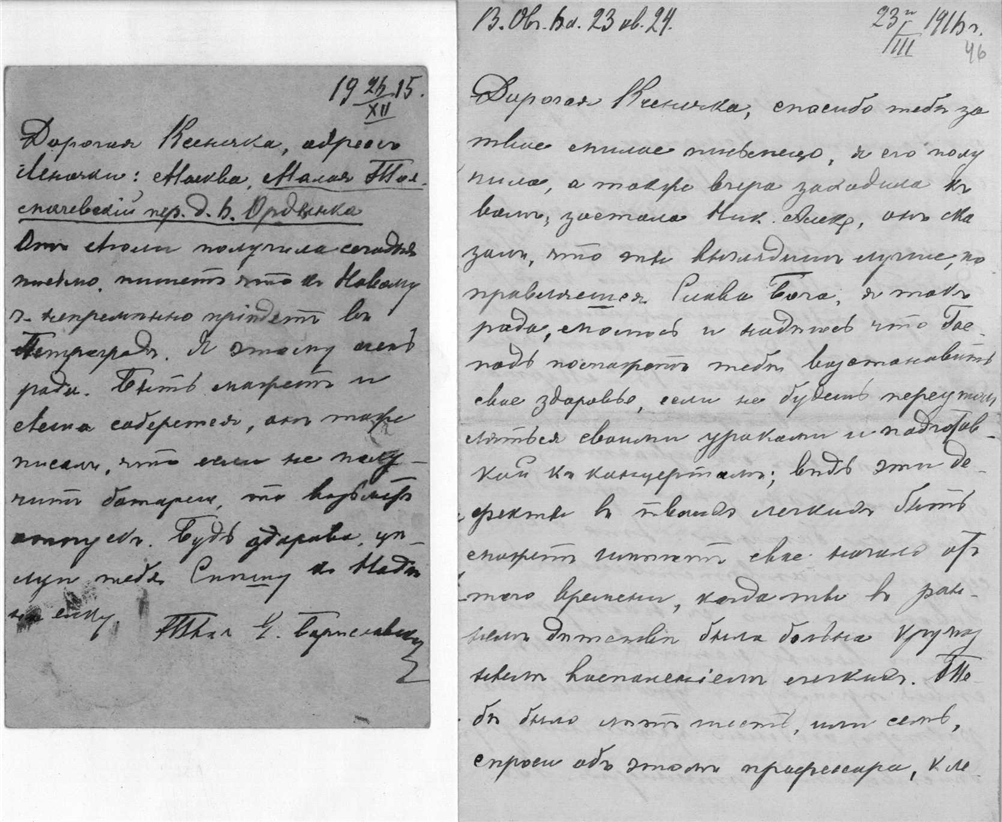 19 24/XII 15.
Дорогая Ксеничка, адресъ
Леночки: Москва, Малая Тол-
мачевскій пер. д. б. Ордынка
Отъ Люли получила сегодня
письмо, пишетъ что къ Новому
г. непремѣнно пріѣдетъ въ
Петроградъ. Я этому очень
рада. Быть можетъ и
соберется, онъ тоже
писалъ, что если не полу-
читъ батареи, то возьметъ
отпускъ. Будь здорова, цѣ-
лую тебя Спѣшу къ Надѣ
на елку.
Твоя
В. Ов. 23 кв. 24.
23го/III 1916 г.
46
Дорогая Ксеничка, спасибо тебѣ за
твое милое письмецо, я его полу
чила, а также вчера заходила къ
вамъ, застала Ник. Алек, онъ ска
залъ, что ты выглядишь лучше, по
правляешься Слава Богу, я такъ
рада, молюсь и надѣюсь что Гос-
подь поможетъ тебѣ возстановить
свое здоровье, если не будешь переутом
ляться своими уроками и подготов-
кой къ концертамъ; вѣдь эти де-
фекты въ твоихъ легкихъ быть
можетъ имѣютъ свое начало отъ
того времени, когда ты въ ран-
немъ дѣтствѣ была больна крупоз
нымъ воспаленіемъ легкихъ. Те-
бѣ было лѣтъ шесть, или семь,
спроси объ этомъ профессора, к ле-